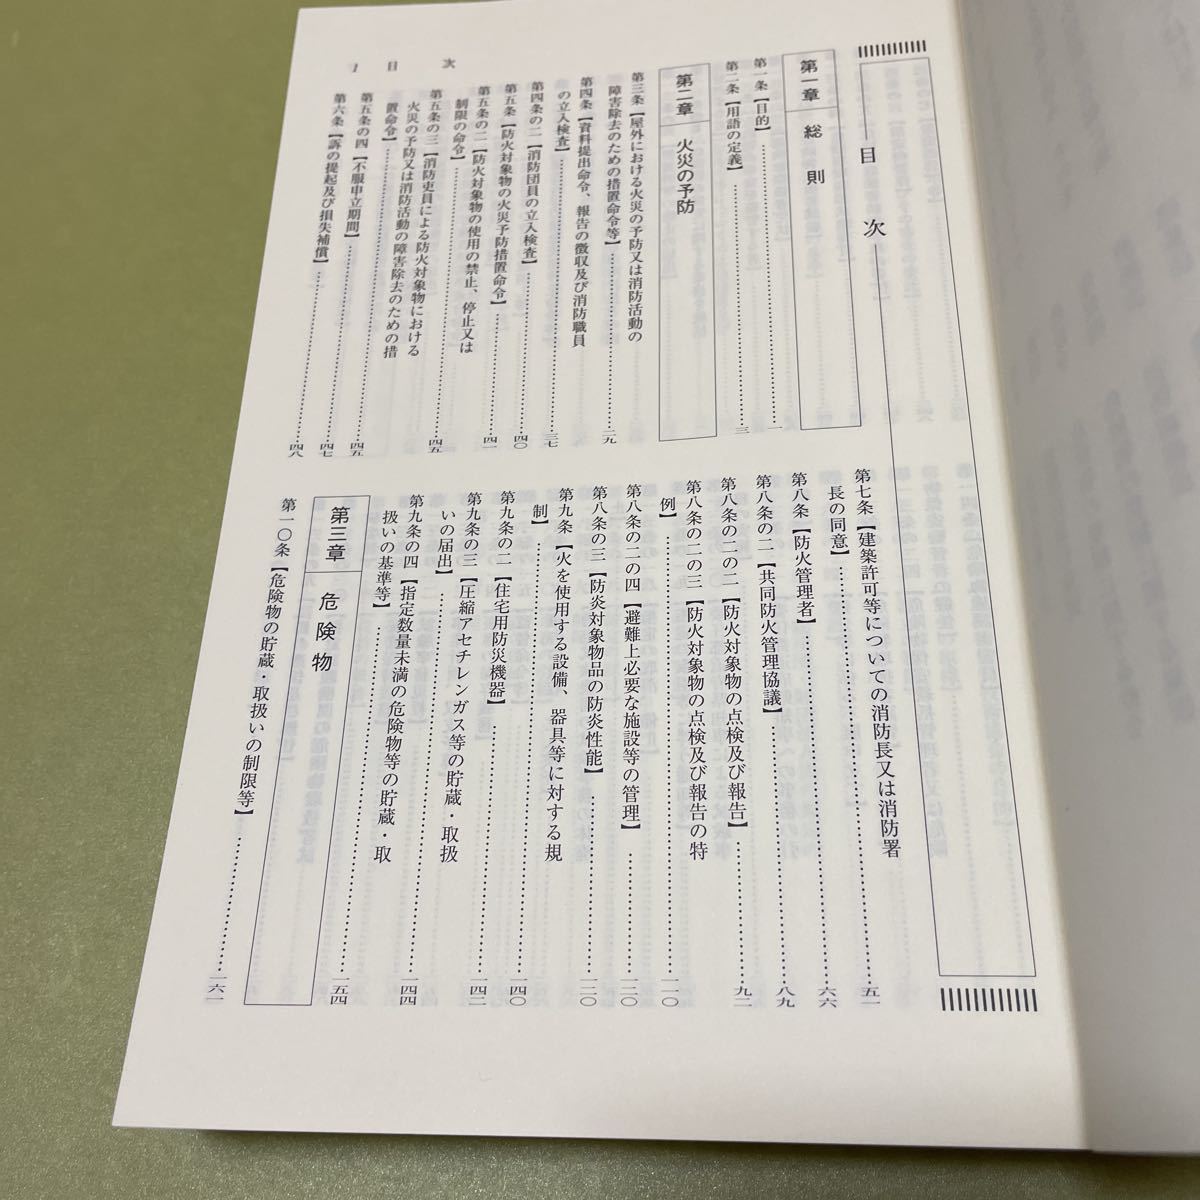 目次
第一章 総則
第一条【目的】……一
第二条【用語の定義】……三
第二章 火災の予防
第三条【屋外における火災の予防又は消防活動の
障害除去のための措置命令等】……二九
第四条【資料提出命令、報告の徴収及び消防職員
の立入検査】……三七
第四条の二【消防団員の立入検査】……四〇
第五条【防火対象物の火災予防措置命令】……四一
第五条の二【防火対象物の使用の禁止、停止又は
制限の命令】……四五
第五条の三【消防吏員による防火対象物における
火災の予防又は消防活動の障害除去のための措
置命令】……四五
第五条の四【不服申立期間】……四七
第六条【訴の提起及び損失補償】……四八
第七条【建築許可等についての消防長又は消防署
長の同意】……五一
第八条【防火管理者】……六六
第八条の二【共同防火管理協議】……八九
第八条の二の二【防火対象物の点検及び報告】……九二
第八条の二の三【防火対象物の点検及び報告の特
例】……一一〇
第八条の二の四【避難上必要な施設等の管理】……一二〇
第八条の三【防炎対象物品の防炎性能】……一二〇
第九条【火を使用する設備、器具等に対する規
制】……一四〇
第九条の二【住宅用防災機器】……一四二
第九条の三【圧縮アセチレンガス等の貯蔵・取扱
いの届出】……一四四
第九条の四【指定数量未満の危険物等の貯蔵・取
扱いの基準等】……一五四
第三章 危険物
第一〇条【危険物の貯蔵・取扱いの制限等】……一六一
1 目次